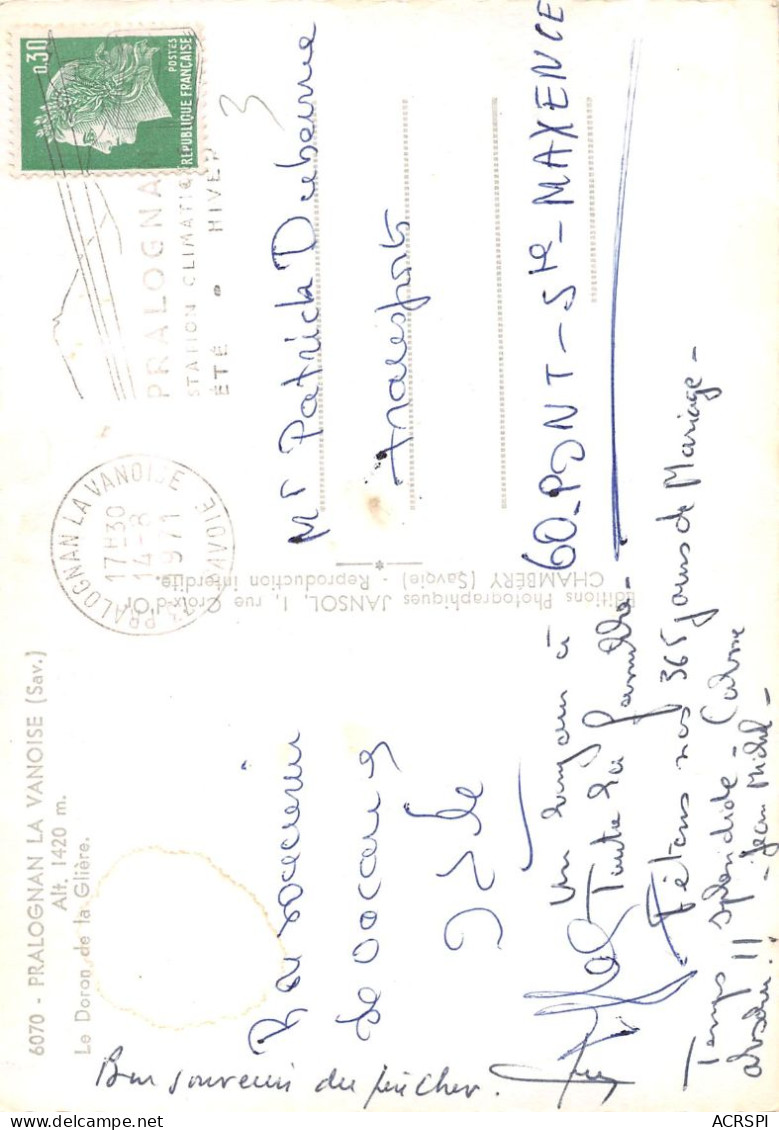 6070 - PRALOGNAN LA VANOISE (Sav.)
Alt. 1420 m.
Le Doron de la Glière.
Bon souvenir
de vacances
Bon souvenir du
Un bonjour à
Toute la famille -
Fêtons nos 365 jours de Mariage -
Temps splendide - Calme
absolu !!
- Jean Michel -
Editions Photographiques JANSOL, 1, rue Croix-d'Or
CHAMBÉRY (Savoie) - Reproduction interdite
PRALOGNAN LA VANOISE
17H30
14-8
1971
SAVOIE
PRALOGNA
STATION CLIMATI
ÉTÉ • HIVER
0,30
POSTES
REPUBLIQUE FRANÇAISE
3
Mr Patrick Duberne
Transports
60 - PONT - Ste - MAXENCE
ACRSPI